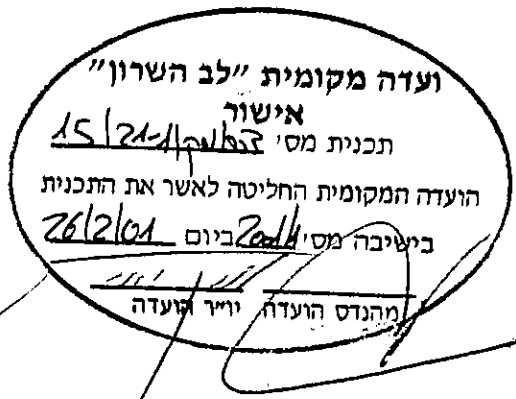 ועדה מקומית "לב השרון"
אישור
תכנית מס'
הועדה המקומית החליטה לאשר את התכנית
בישיבה מס' ביום 26/2/01
מהנדס הועדה יו"ר הועדה